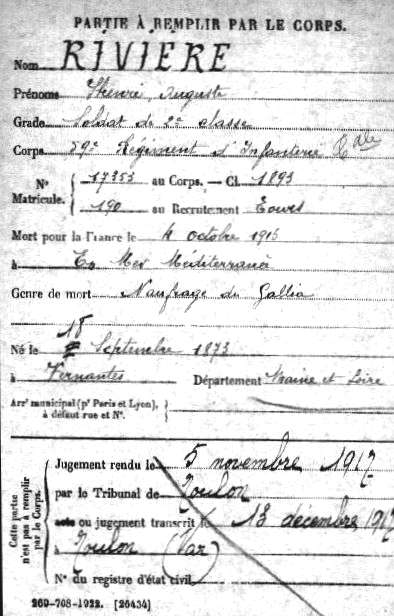 PARTIE À REMPLIR PAR LE CORPS.
Nom RIVIÈRE
Prénoms Henri, Auguste
Grade Soldat de 2e classe
Corps 59e Régiment d'Infanterie Cale
N° Matricule. { 17353 au Corps. — Cl. 1893
190 au Recrutement Tours
Mort pour la France le 4 octobre 1915
à En Mer Méditerranée
Genre de mort Naufrage du Gallia
18
Né le Septembre 1873
à Vernantes Département Maine et Loire
Arr' municipal (p' Paris et Lyon), à défaut rue et N°. }
Cette partie n'est pas à remplir par le Corps.
Jugement rendu le 5 novembre 1917
par le Tribunal de Toulon
acte ou jugement transcrit le 13 décembre 1917
à Toulon (Var)
N° du registre d'état civil
269-708-1922. [26434]